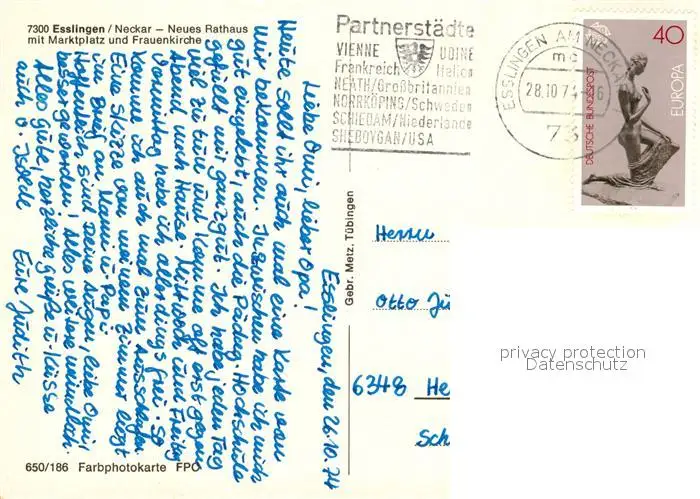 7300 Esslingen / Neckar — Neues Rathaus
mit Marktplatz und Frauenkirche
Esslingen, den 26.10.74
Liebe Omi, lieber Opa!
Heute sollt ihr auch mal eine Karte von
mir bekommen. Inzwischen habe ich mich
gut eingelebt, auch die Pädag. Hochschule
gefällt mir ganz gut. Ich habe jeden Tag
viel zu tun und komme oft erst gegen
Abend nach Hause. Mittwoch und Freitag
Vormittag habe ich allerdings frei. So
komme ich auch mal zum Ausschlafen.
Eine Skizze von meinem Zimmer liegt
im Brief an Mami u. Papi.
Hoffentlich sind Deine Augen, liebe Omi,
besser geworden! Alles weitere mündlich.
Alles gute, herzliche Grüße u. Küsse
auch v. Eure Judith
Partnerstädte
VIENNE UDINE
Frankreich Italien
NEATH/Großbritannien
NORRKÖPING/Schweden
SCHIEDAM/Niederlande
SHEBOYGAN/USA
ESSLINGEN AM NECKAR
mc
28.10.74
73
40
EUROPA
DEUTSCHE BUNDESPOST
Gebr. Metz, Tübingen
Herrn
Otto Jü
6348 He
Sch
privacy protection
Datenschutz
650/186 Farbphotokarte FPO